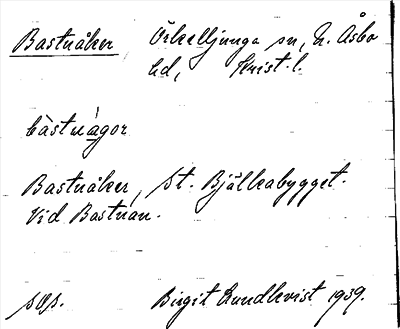 Bastnåker Örkelljunga sn, N. Åsbo
hd, Krist. l.
bàstnágor
Bastnåker, St. Bjälkabygget.
Vid Bastnån.
sop. Birgit Lundkvist 1939.